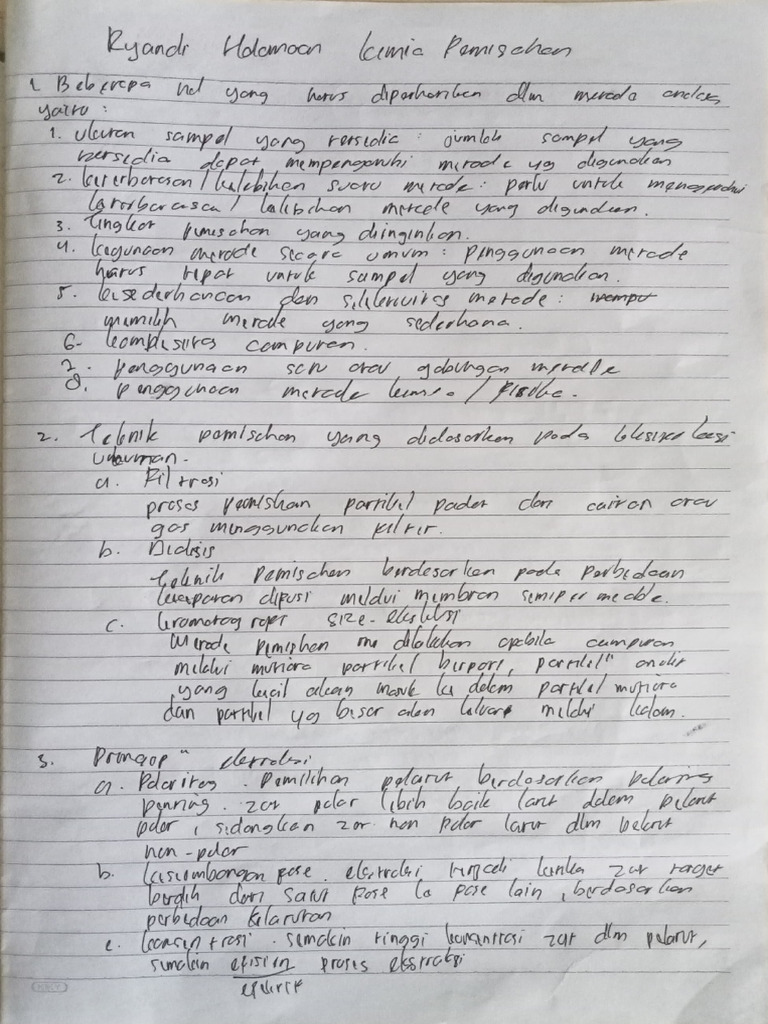 Ryandi Halomoan Kimia Pemisahan
1. Beberapa hal yang harus diperhatikan dlm metode analisis
yaitu :
1. Ukuran sampel yang tersedia : jumlah sampel yang
tersedia dapat mempengaruhi metode yg digunakan
2. keterbatasan / kelebihan suatu metode : perlu untuk mengetahui
keterbatasan / kelebihan metode yang digunakan.
3. tingkat pemisahan yang diinginkan.
4. kegunaan metode secara umum : penggunaan metode
harus tepat untuk sampel yang digunakan.
5. kesederhanaan dan selektivitas metode : mampu
memilih metode yang sederhana.
6. kompleksitas campuran.
7. penggunaan satu atau gabungan metode
8. penggunaan metode kimia / fisika.
2. teknik pemisahan yang didasarkan pada
ukuran.
a. Filtrasi
proses pemishan partikel padat dan cairan atau
gas menggunakan filtir.
b. Dialisis
teknik pemisahan berdasarkan pada perbedaan
kecepatan difusi melalui membran semipermeable.
c. kromatografi size-eksklusi
Metode pemisahan ini dilakukan apabila campuran
melalui mutiara partikel berpori, partikel" analit
yang kecil akan masuk ke dalam partikel mutiara
dan partikel yg besar akan keluar melalui kolom.
3. Prinsip" ekstraksi
a. Polaritas. Pemilihan pelarut berdasarkan polaritas
penting. zat polar lebih baik larut dalam pelarut
polar, sedangkan zat non polar larut dlm pelarut
non-polar
b. keseimbangan fase. ekstraksi terjadi ketika zat target
beralih dari satu fase ke fase lain, berdasarkan
perbedaan kelarutan
c. konsentrasi. semakin tinggi konsentrasi zat dlm pelarut,
semakin efisien proses ekstraksi
efektif